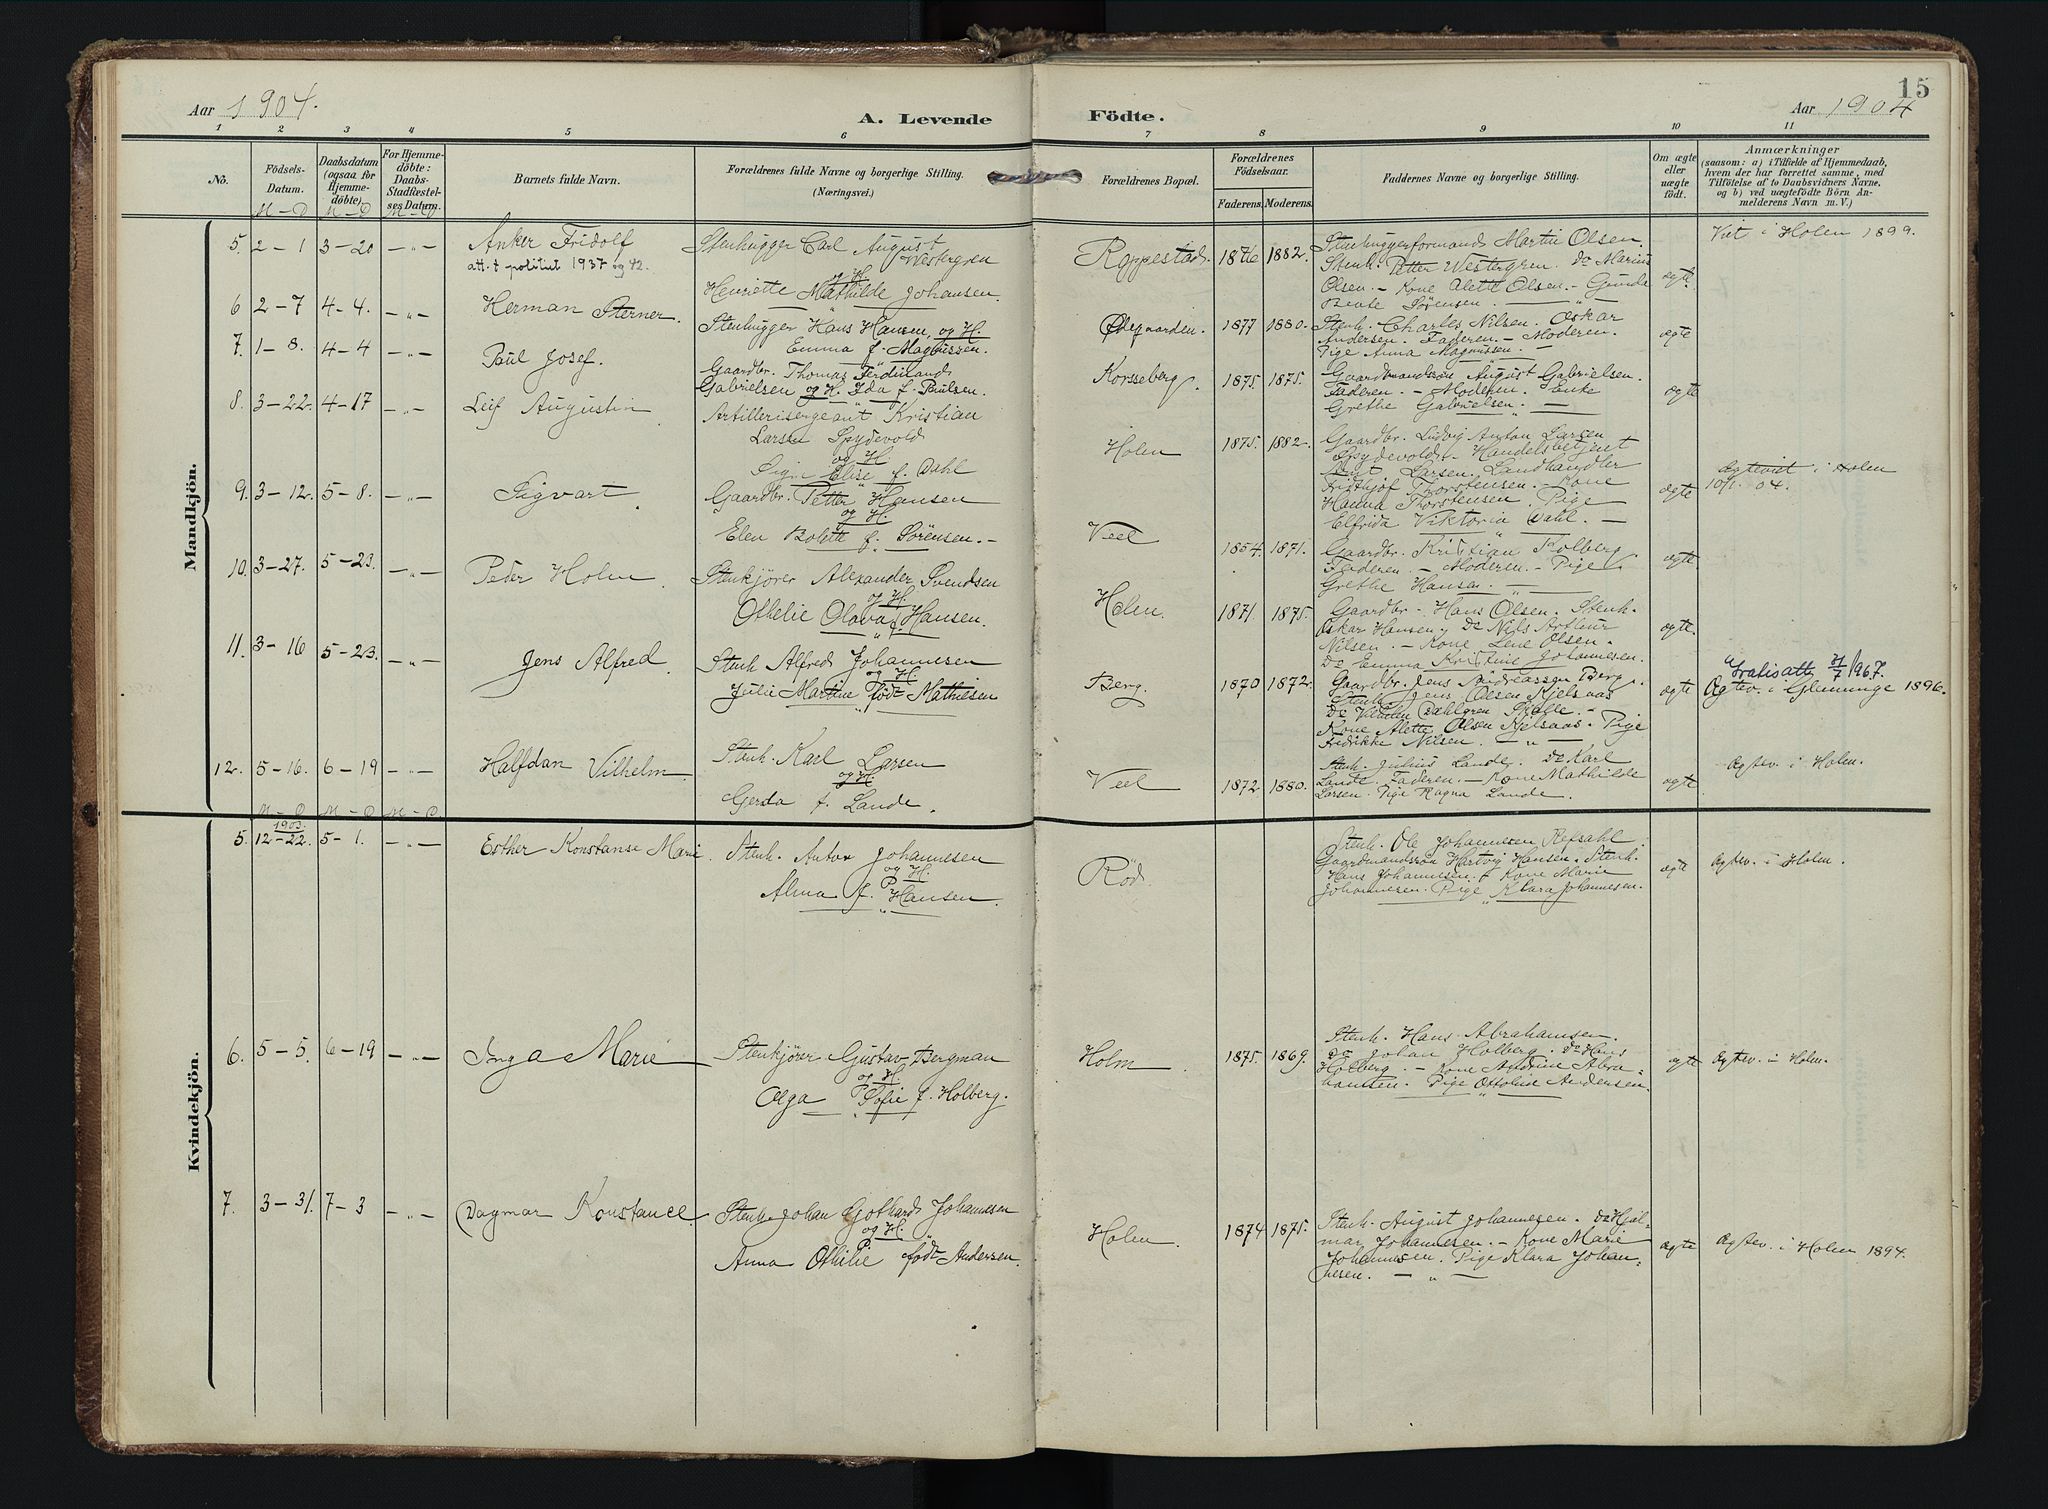 15
Aar 1904.
A. Levende
Födte.
Aar 1904
1 2 3 4 5 6 7 8 9 10 11
No.
Födsels-Datum.
Daabsdatum (ogsaa for Hjemme-döbte).
For Hjemme-döbte: Daabs-Stadfæstel-ses Datum.
Barnets fulde Navn.
Forældrenes fulde Navne og borgerlige Stilling. (Næringsvei.)
Forældrenes Bopæl.
Forældrenes Födselsaar.
Faderens. Moderens.
Faddernes Navne og borgerlige Stilling.
Om ægte eller uægte födt.
Anmærkninger
(saasom: a) i Tilfælde af Hjemmedaab,
hvem der har forrettet samme, med
Tilföielse af to Daabsvidners Navne,
og b) ved uægtefödte Börn An-
melderens Navn m. V.)
M – D M – D M – D
Mandkjön.
5. 2 – 1 3 – 20 – „ – Anker Fridolf
att. t politiet 1937 og 42.
Stenhugger Carl August
Westergren
og H.
Henriette Mathilde Johansen.
Roppestad. 1876 1882.
Stenhuggerformand Martin Olsen.
Stenh. Petter Westergren. Do Marius
Olsen. – Kone Alette Olsen. – Gunda
Beate Sörensen. – „ –
ægte.
Viet i Holen 1899.
6 2 – 7 4 – 4. – „ – Herman Sterner.
Stenhugger Hans Hansen og H.
Emma f. Magnussen.
Ödegaarden. 1877 1880.
Stenh. Charles Nilsen. Oskar
Andersen. Faderen. – Moderen.
Pige Anna Magnussen. –
ægte
7. 1 – 8. 4 – 4 – „ – Paul Josef.
Gaardbr. Thomas Ferdinand
Gabrielsen og H. Ida f. Paulsen.
Korsseberg. 1875. 1875.
Gaardmandssön August Gabrielsen.
Faderen. – Moderen. Enke
Grethe Gabrielsen. –
ægte
8. 3 – 22. 4 – 17 – „ – Leif Augustin
Artillerisergeant Kristian
Larsen Spydevold
og H.
Elise f. Dahl
Holen 1875. 1882.
Gaardbr. Ludvig Anton Larsen
Spydevold. – Handelsbetjent
Larsen. Landhandler
Fridthjof Thorstensen. – Kone
Hanna Thorstensen. Pige
Elfrida Viktoria Dahl. –
ægte
Ægteviet i Holen
10/1. 04.
9. 3 – 12. 5 – 8. – „ – Sigvart
Gaardbr. Petter Hansen
og H.
Elen Bolette f. Sörensen. –
Veel 1854. 1871.
Gaardbr. Kristian Kolberg.
Faderen. – Moderen. – Pige
Grethe Hansen. –
ægte
10. 3 – 27. 5 – 23. – „ – Peder Holm.
Stenkjörer Alexander Svendsen
og H.
Othelie Olava f. Hansen.
Holen. 1871 1875.
Gaardbr – Hans Olsen. Stenh.
Oskar Hansen, Do Nils Arthur
Nilsen. – Kone Lene Olsen.
Do Emma Kristine Johannesen.
ægte.
11. 3 – 16 5 – 23. – „ – Jens Alfred.
Stenh Alfred Johannesen
og H.
Julie Martine född Mathiesen
Berg. 1870 1872.
Gaardbr. Jens Andreassen Berg.
Stenh. Jens Olsen Kjelsaas
Do Vilhelm Dahlgren Skolle. –
Kone Alette Olsen Kjelsaas. Pige
Fredrikke Nilsen. – „ –
ægte
Gratisatt. /1967.
Ægtev. i Glemminge 1896.
12. 5 – 16. 6 – 19 – „ – Halfdan Vilhelm.
Stenh. Karl Larsen
og H.
Gerda f. Lande.
Veel 1872 1880.
Stenh. Julius Lande. Do Karl
Lande. Faderen. – Kone Mathilde
Larsen. Pige Ragna Lande.
ægte
Ægtev. i Holen.
M – D M – D M – D
Kvindekjön.
1903.
5. 12 – 22. 5 – 1. – „ – Esther Konstanse Marie.
Stenh. Anton Johannesen
og H.
Alma f. Hansen.
Röd.
Stenh. Ole Johannesen Refsahl
Gaardmandssön Hartvig Hansen. Stenh.
Hans Johannesen. Kone Marie
Johannesen. Pige Klara Johannesen.
ægte
Ægtev. i Holen.
6. 5 – 5. 6 – 19 – „ – Inga Marie
Stenkjörer Gustav Bergman
og H.
Olga Sofie f. Holberg.
Holm. 1875. 1869.
Stenh. Hans Abrahamsen.
Do Johan Holberg. Do Hans
Holberg. – Kone Andrine Abra-
hamsen. Pige Ottoline Andersen.
ægte
Ægtev. i Holen.
7. 3 – 31. 7 – 3 – „ – Dagmar Konstance
Stenh. Johan Gothard Johannesen
og H.
Anna Othilie född Andersen.
Holen. 1874 1875.
Stenh. August Johannesen. Do Hjal-
mar Johannesen. – Kone Marie
Johannesen. Pige Klara Johan-
nesen. – „ –
ægte
Ægtev. i Holen 1894.